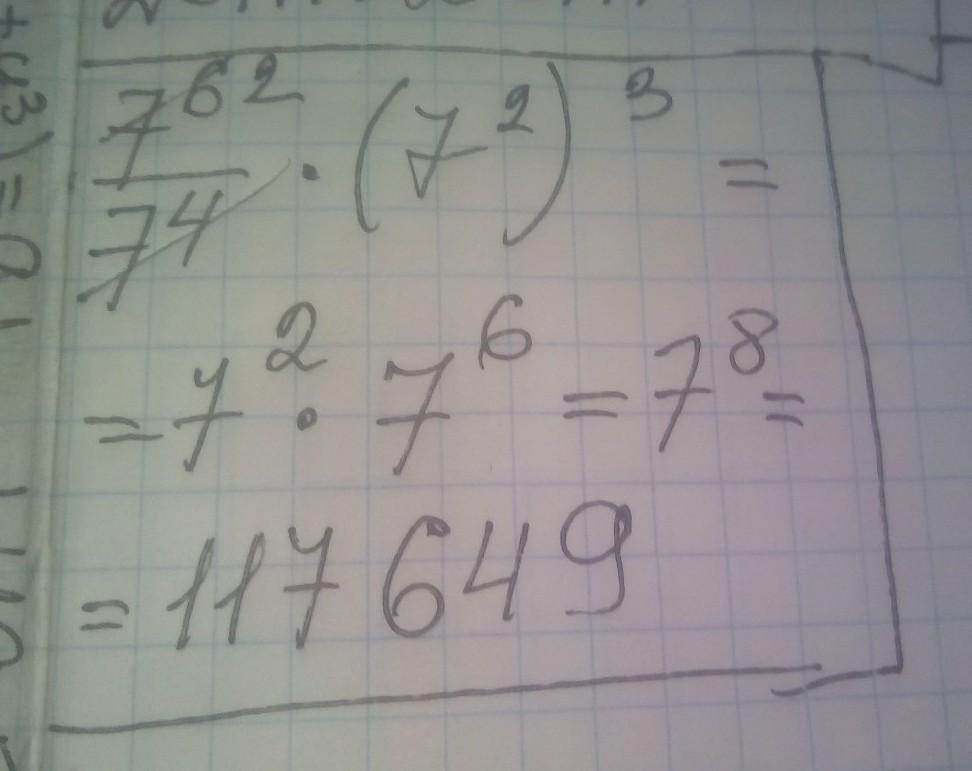 7^6 2/7^4 · (7^2)^3 =
= 7^2 · 7^6 = 7^8 =
= 117649